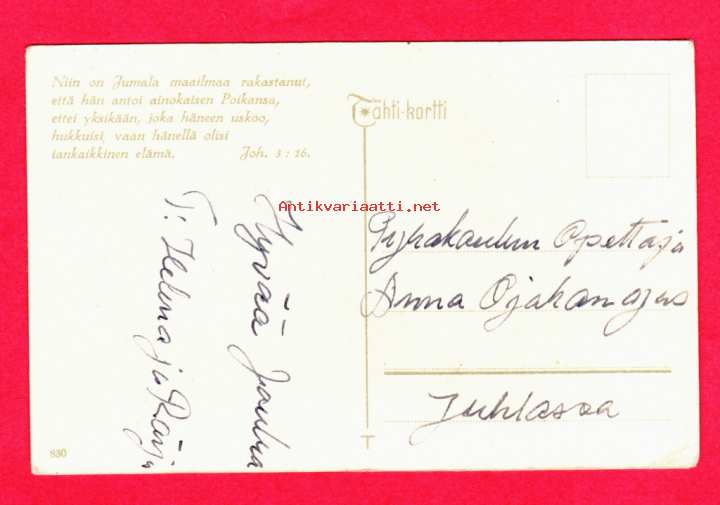 Niin on Jumala maailmaa rakastanut,
että hän antoi ainokaisen Poikansa,
ettei yksikään, joka häneen uskoo,
hukkuisi, vaan hänellä olisi
iankaikkinen elämä. Joh. 3 : 16.
Tähti-kortti
Antikvariaatti.net
Hyvää Joulua
T: Helena ja Raija
Pyhäkoulun Opettaja
Anna Ojakangas
Juhlassa
T
830